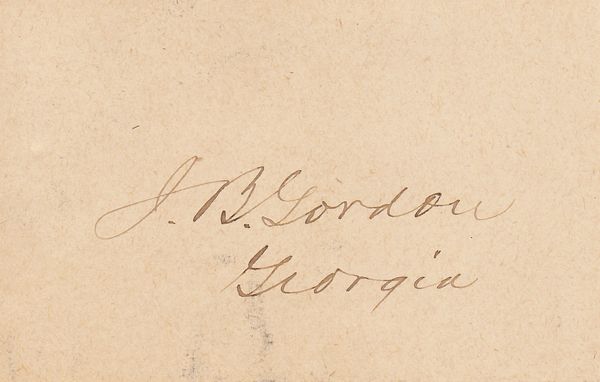 J. B. Gordon
Georgia